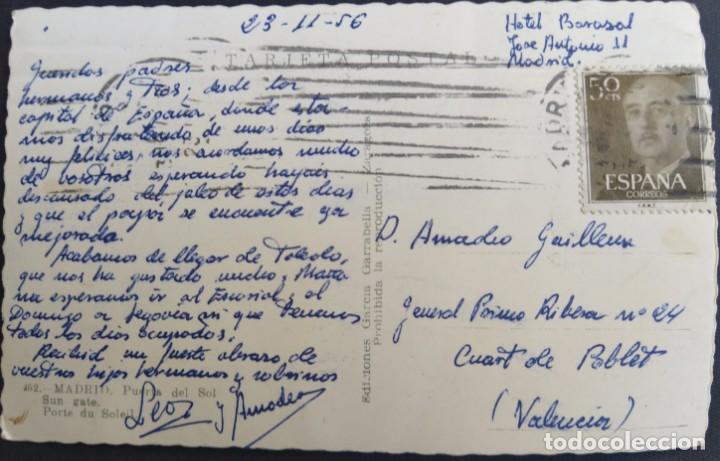 23-11-56
Hotel Barasol
Jose Antonio 11
Madrid.
TARJETA POSTAL
Queridos padres
hermanos y tios; desde la
capital de España, donde esta-
mos disfrutando, de unos dias
muy felices, nos acordamos mucho
de vosotros esperando hayais
descansado del jaleo de estos dias
y que el payor se encuentre ya
mejorado.
Acabamos de llegar de Toledo,
que nos ha gustado mucho, Maña
na esperamos ir al Escorial, el
Domingo a Segovia, asi que tenemos
todos los dias ocupados.
Recibid un fuerte abrazo de
vuestros hijos hermanos y sobrinos
y Amadeo
462.- MADRID. Puerta del Sol
Sun gate.
Porte du Soleil
Ediciones García Garrabella - Zaragoza
Prohibida la reproducción
50 cts
ESPAÑA
CORREOS
D. Amadeo Guillem
General Primo Ribera nº 24
Cuart de Poblet
(Valencia)
todocoleccion.net